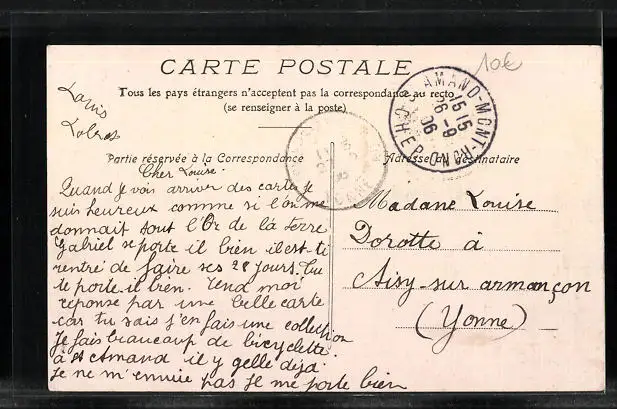 10€
CARTE POSTALE
Tous les pays étrangers n'acceptent pas la correspondance au recto
(se renseigner à la poste)
Partie réservée à la Correspondance
Cher Louise
Quand je vois arriver des cartes je
suis heureux comme si l'on me
donnait tout l'Or de la terre
Gabriel se porte il bien il est-ti
rentré de faire ses 28 jours. Tu
te porte-il bien. Rend moi
réponse par une belle carte
car tu sais j'en fais une collection
Je fais beaucoup de bicyclette
à St Amand il y gelle déja.
Je ne m'ennuie pas Je me porte bien
Adresse du destinataire
Madame Louise
Dorotte à
Aisy-sur armançon
(Yonne)
ST AMAND-MONT-RD
CHER
15 15
26-9
06